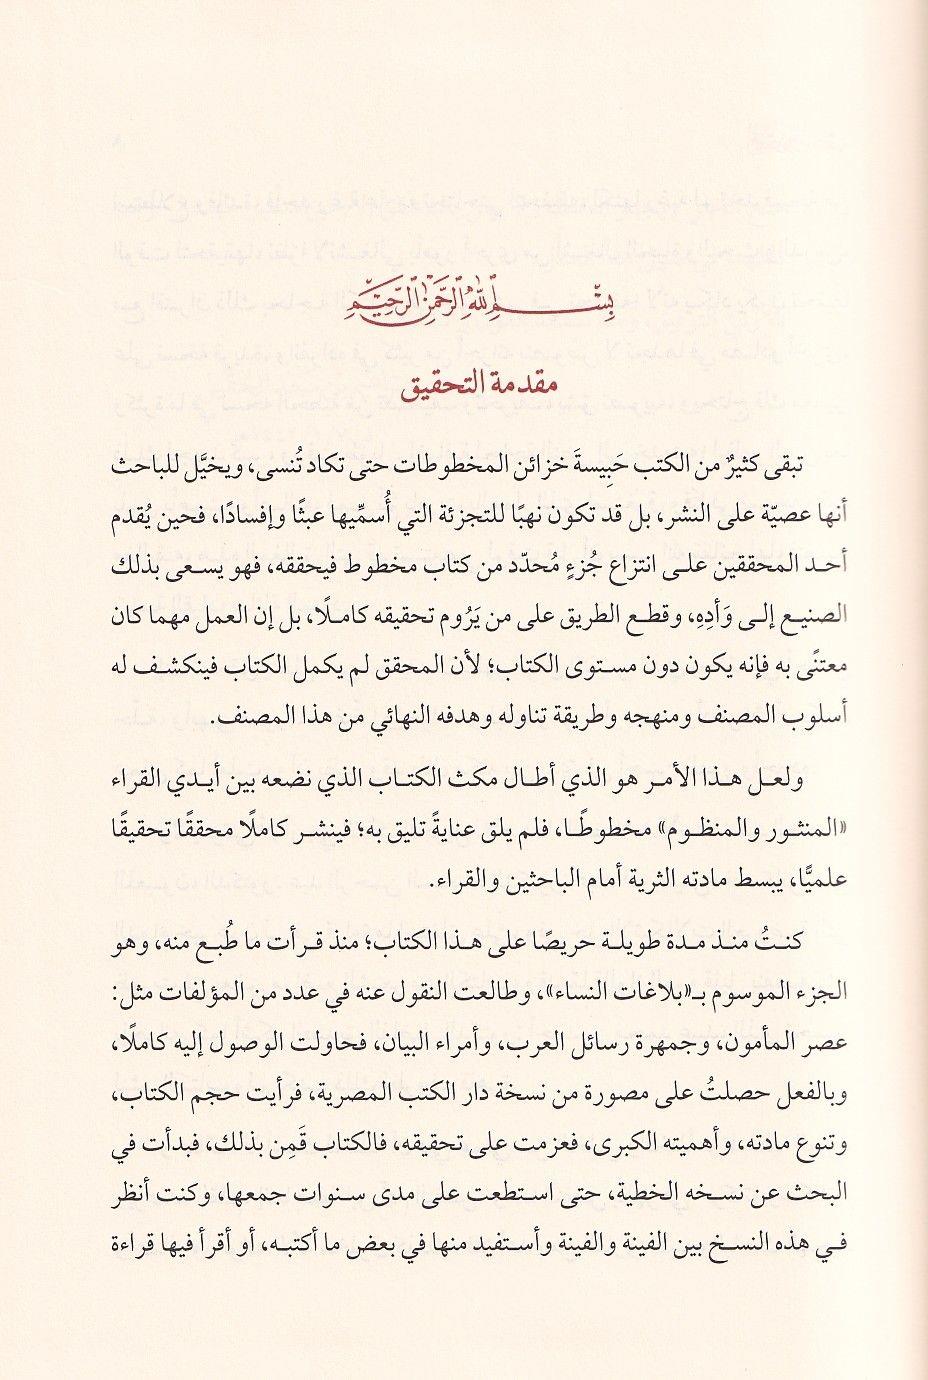 بِسْمِ اللَّهِ الرَّحْمَنِ الرَّحِيمِ
مقدمة التحقيق
تبقى كثيرٌ من الكتب حَبِيسةَ خزائن المخطوطات حتى تكاد تُنسى، ويخيَّل للباحث
أنها عصيّة على النشر، بل قد تكون نهبًا للتجزئة التي أُسمِّيها عبثًا وإفسادًا، فحين يُقدم
أحد المحققين على انتزاع جُزءٍ مُحدّد من كتاب مخطوط فيحققه، فهو يسعى بذلك
الصنيع إلى وَأدِهِ، وقطع الطريق على من يَرُوم تحقيقه كاملًا، بل إن العمل مهما كان
معتنًى به فإنه يكون دون مستوى الكتاب؛ لأن المحقق لم يكمل الكتاب فينكشف له
أسلوب المصنف ومنهجه وطريقة تناوله وهدفه النهائي من هذا المصنف.
ولعل هذا الأمر هو الذي أطال مكث الكتاب الذي نضعه بين أيدي القراء
«المنثور والمنظوم» مخطوطًا، فلم يلق عنايةً تليق به؛ فينشر كاملًا محققًا تحقيقًا
علميًّا، يبسط مادته الثرية أمام الباحثين والقراء.
كنتُ منذ مدة طويلة حريصًا على هذا الكتاب؛ منذ قرأت ما طُبع منه، وهو
الجزء الموسوم بـ«بلاغات النساء»، وطالعت النقول عنه في عدد من المؤلفات مثل:
عصر المأمون، وجمهرة رسائل العرب، وأمراء البيان، فحاولت الوصول إليه كاملًا،
وبالفعل حصلتُ على مصورة من نسخة دار الكتب المصرية، فرأيت حجم الكتاب،
وتنوع مادته، وأهميته الكبرى، فعزمت على تحقيقه، فالكتاب قَمِن بذلك، فبدأت في
البحث عن نسخه الخطية، حتى استطعت على مدى سنوات جمعها، وكنت أنظر
في هذه النسخ بين الفينة والفينة وأستفيد منها في بعض ما أكتبه، أو أقرأ فيها قراءة